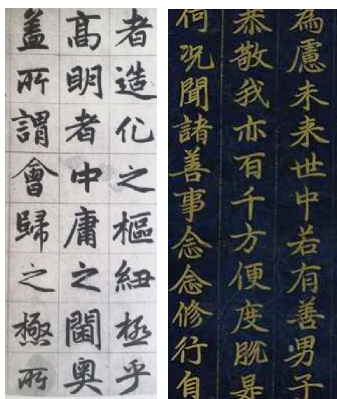 者造化之樞紐極乎
高明者中庸之閫奧
盖所謂會歸之極所
為慮未来世中若有善男子
恭敬我亦百千方便度脫是
何況聞諸善事念念修行自